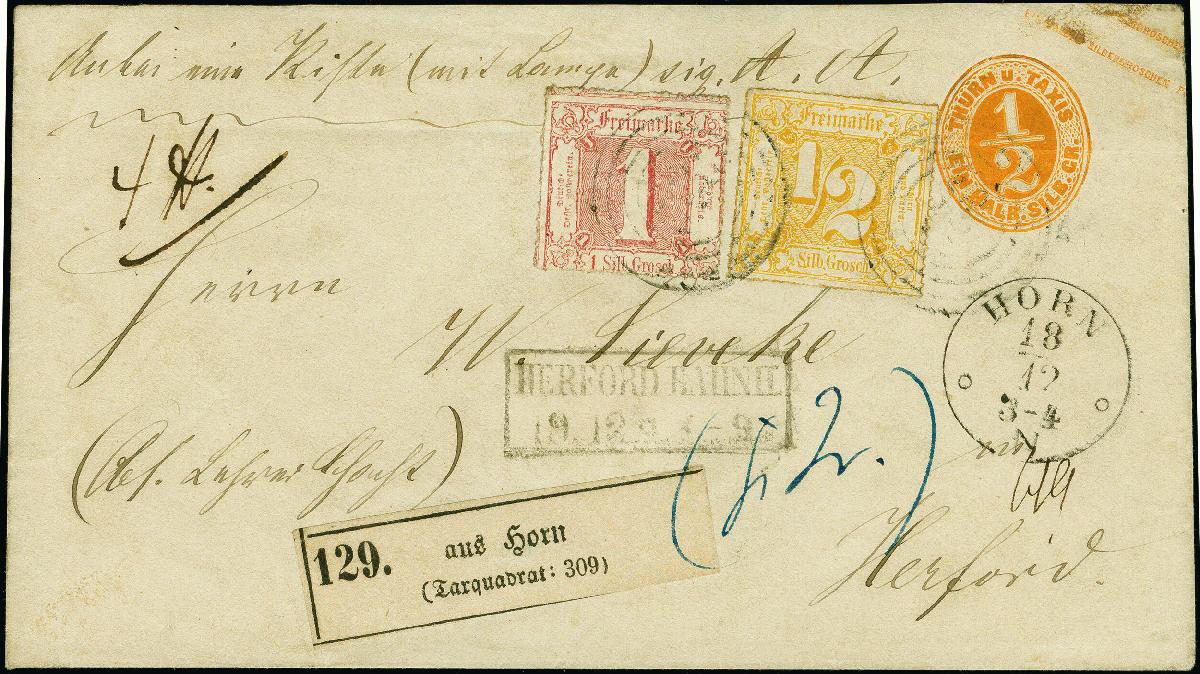 Anbei eine Kiste (mit Lampe) sig. A. A.
SILBERGROSCHEN
Freimarke
1
1 Silb. Grosch
Freimarke
1/2
1/2 Silb. Grosch
THURN U. TAXIS
1/2
EIN HALB. SILB. GR.
4 ℔.
Herrn
W. Sieveke
HERFORD BAHNH.
19 12
HORN
18
12
3-4
N
(Abs. Lehrer Schacht)
in
Herford.
129. aus Horn
(Taxquadrat: 309)